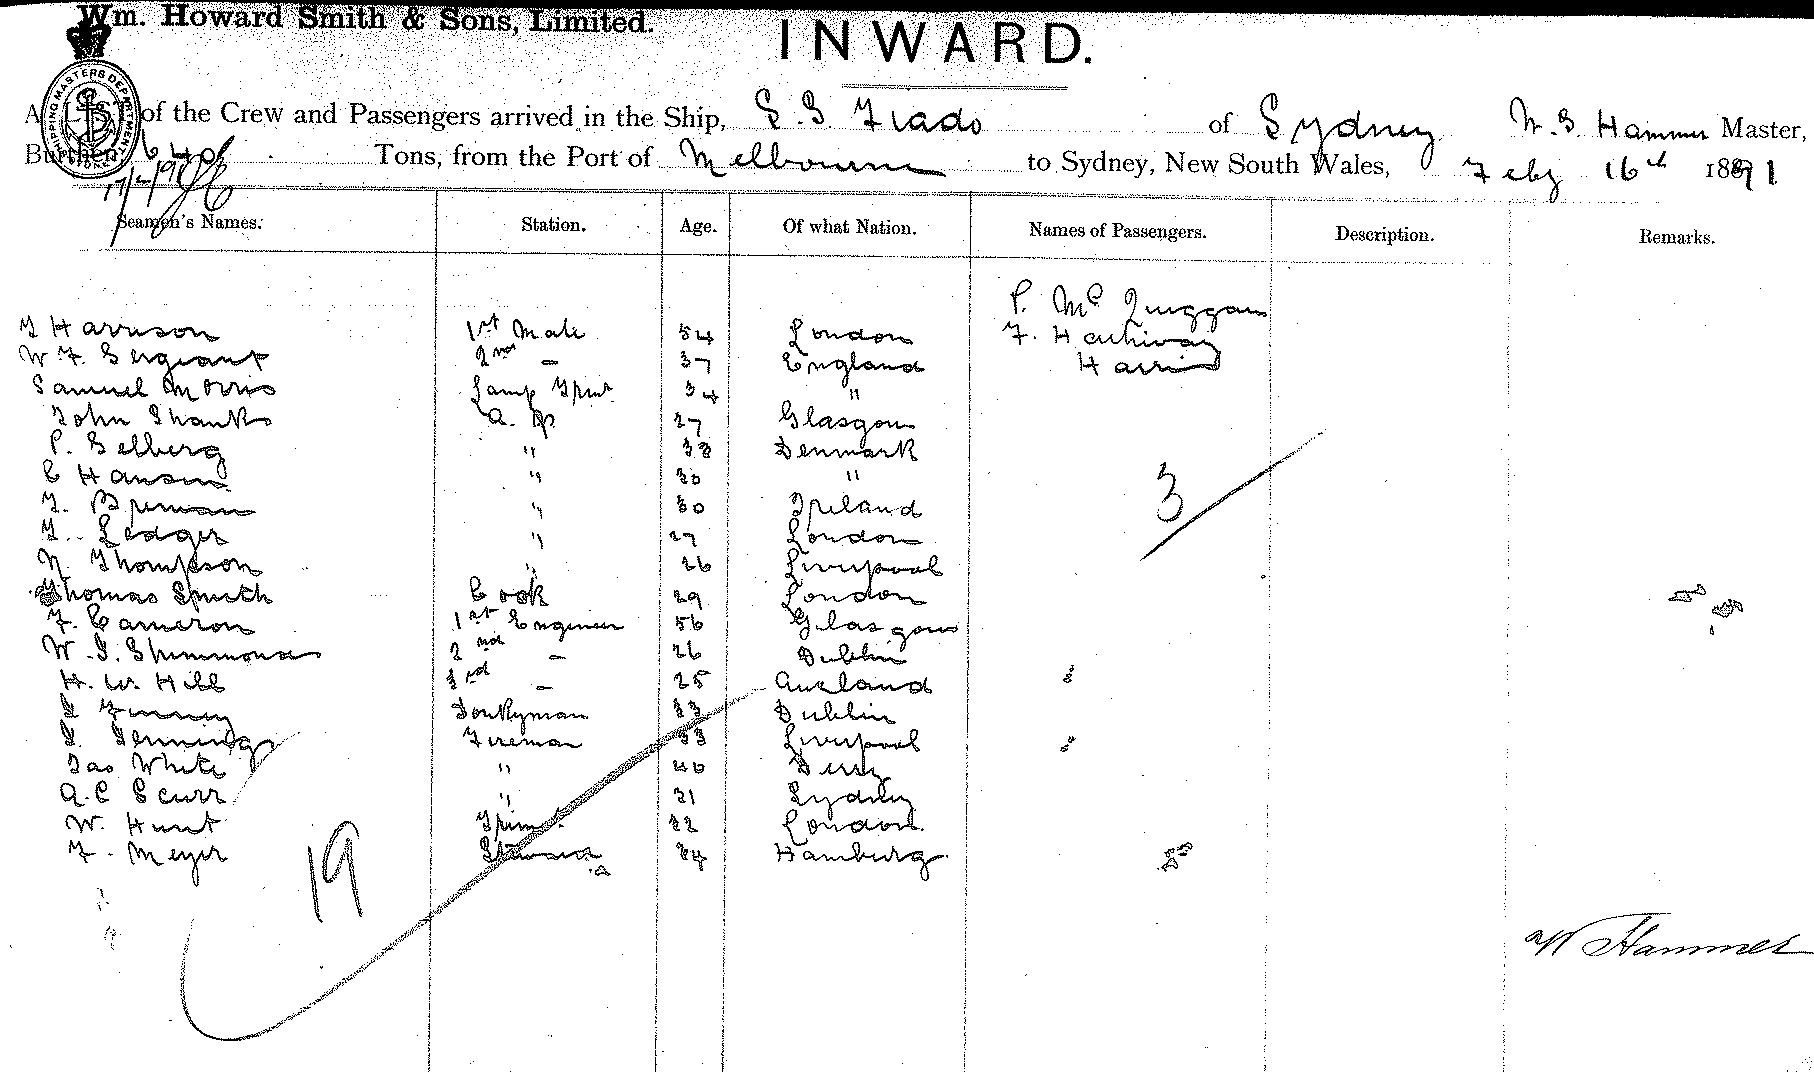 Wm. Howard Smith & Sons, Limited.
INWARD.
SHIPPING MASTERS DEPARTMENT
A LIST of the Crew and Passengers arrived in the Ship, S.S Tiado of Sydney W. G Hammer Master,
Burthen 640 Tons, from the Port of Melbourne to Sydney, New South Wales, Feby 16th 1891
Seamen's Names. Station. Age. Of what Nation. Names of Passengers. Description. Remarks.
P. Mc
J Harrison 1st Mate 54 London
W. F. Sergeant 2nd - 37 England Harris
Samuel Morris Lamp Trimr 34 "
John Shanks A. B 27 Glasgow
P. Selberg " 38 Denmark
C Hansen " 30 "
J. Brennan " 30 Ireland
Ledger " 27 London
Thompson " 26 Liverpool
Thomas Smith Cook 29 London
Cameron 1st Engineer 56 Glasgow
W. Simmonds 2nd - 26 Dublin
H. W. Hill 3rd - 25 Aucland
Donkyman 33 Dublin
Jennings Fireman 33 Liverpool
Jas White " 40 Derry
A. C Scurr " 21 Sydney
W. Hunt Trimr 22 London
F. Meyer Steward 24 Hamburg
3
19
W Hammer